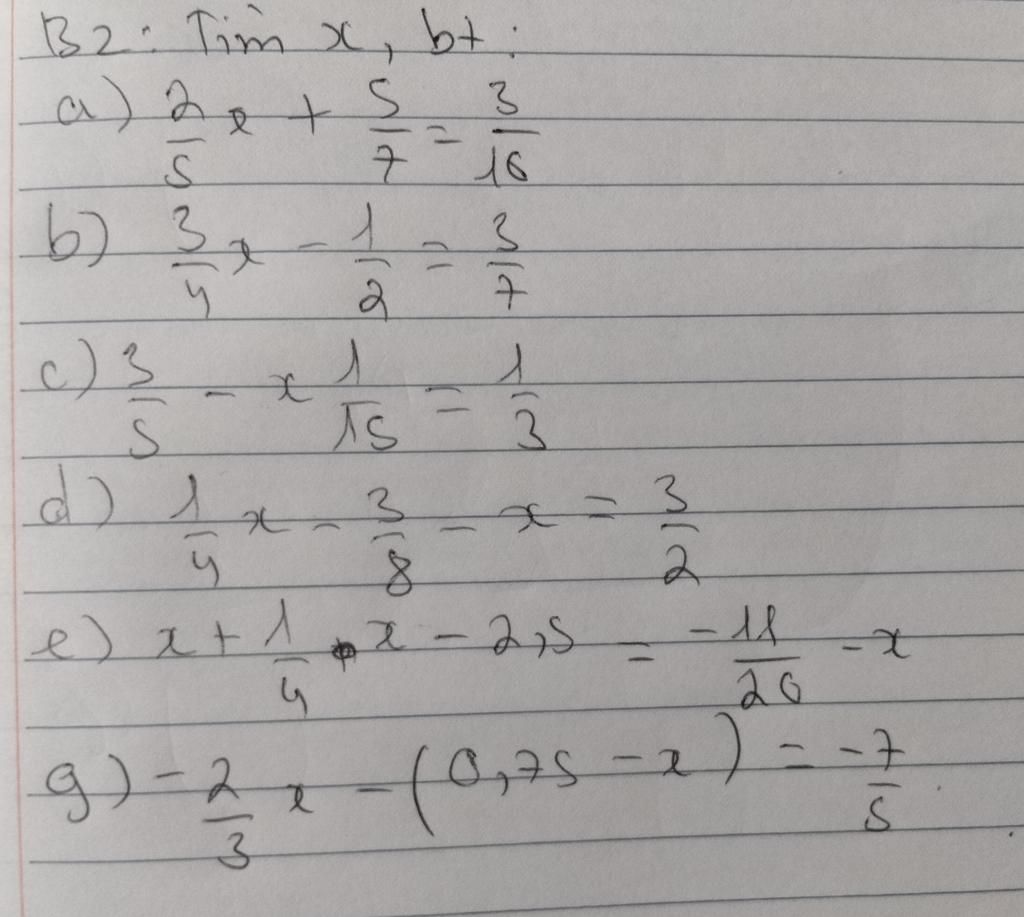 B2: Tìm x, bt:
a) 2/5 x + 5/7 = 3/16
b) 3/4 x - 1/2 = 3/7
c) 3/5 - x 1/15 = 1/3
d) 1/4 x - 3/8 - x = 3/2
e) x + 1/4 . x - 2,5 = -11/20 - x
g) -2/3 x - (0,75 - x) = -7/5.